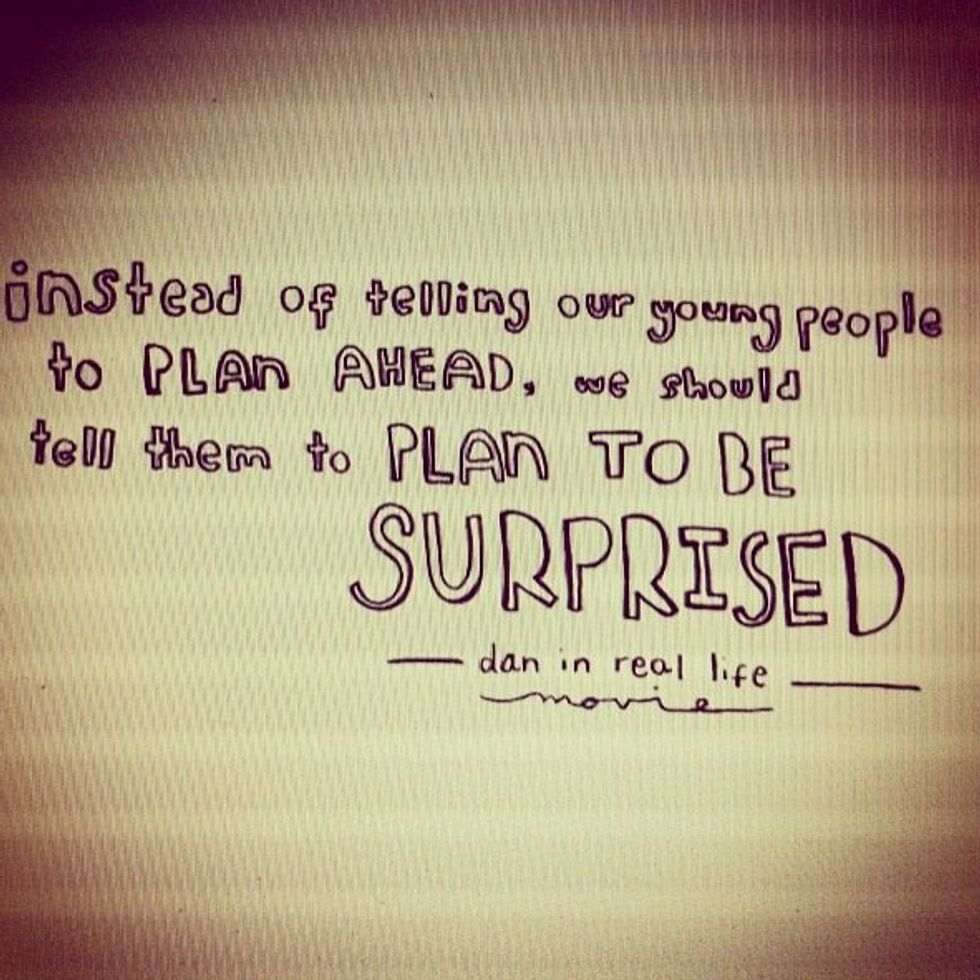 instead of telling our young people
to PLAn AHEAD, we should
tell them to PLAn TO BE
SURPRISED
— dan in real life —
movie